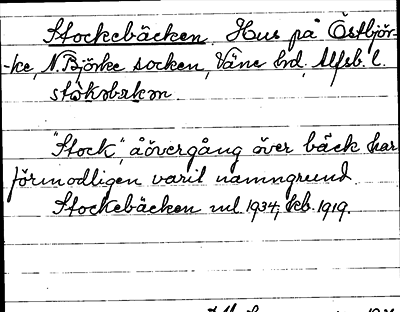 Stockebäcken. Hus på Östbjör-
-ke, N. Björke socken, Väne hd, Älfsb. l.
"Stock", åövergång över bäck har
förmodligen varit namngrund.
Stockebäcken ml. 1934, kb. 1919.